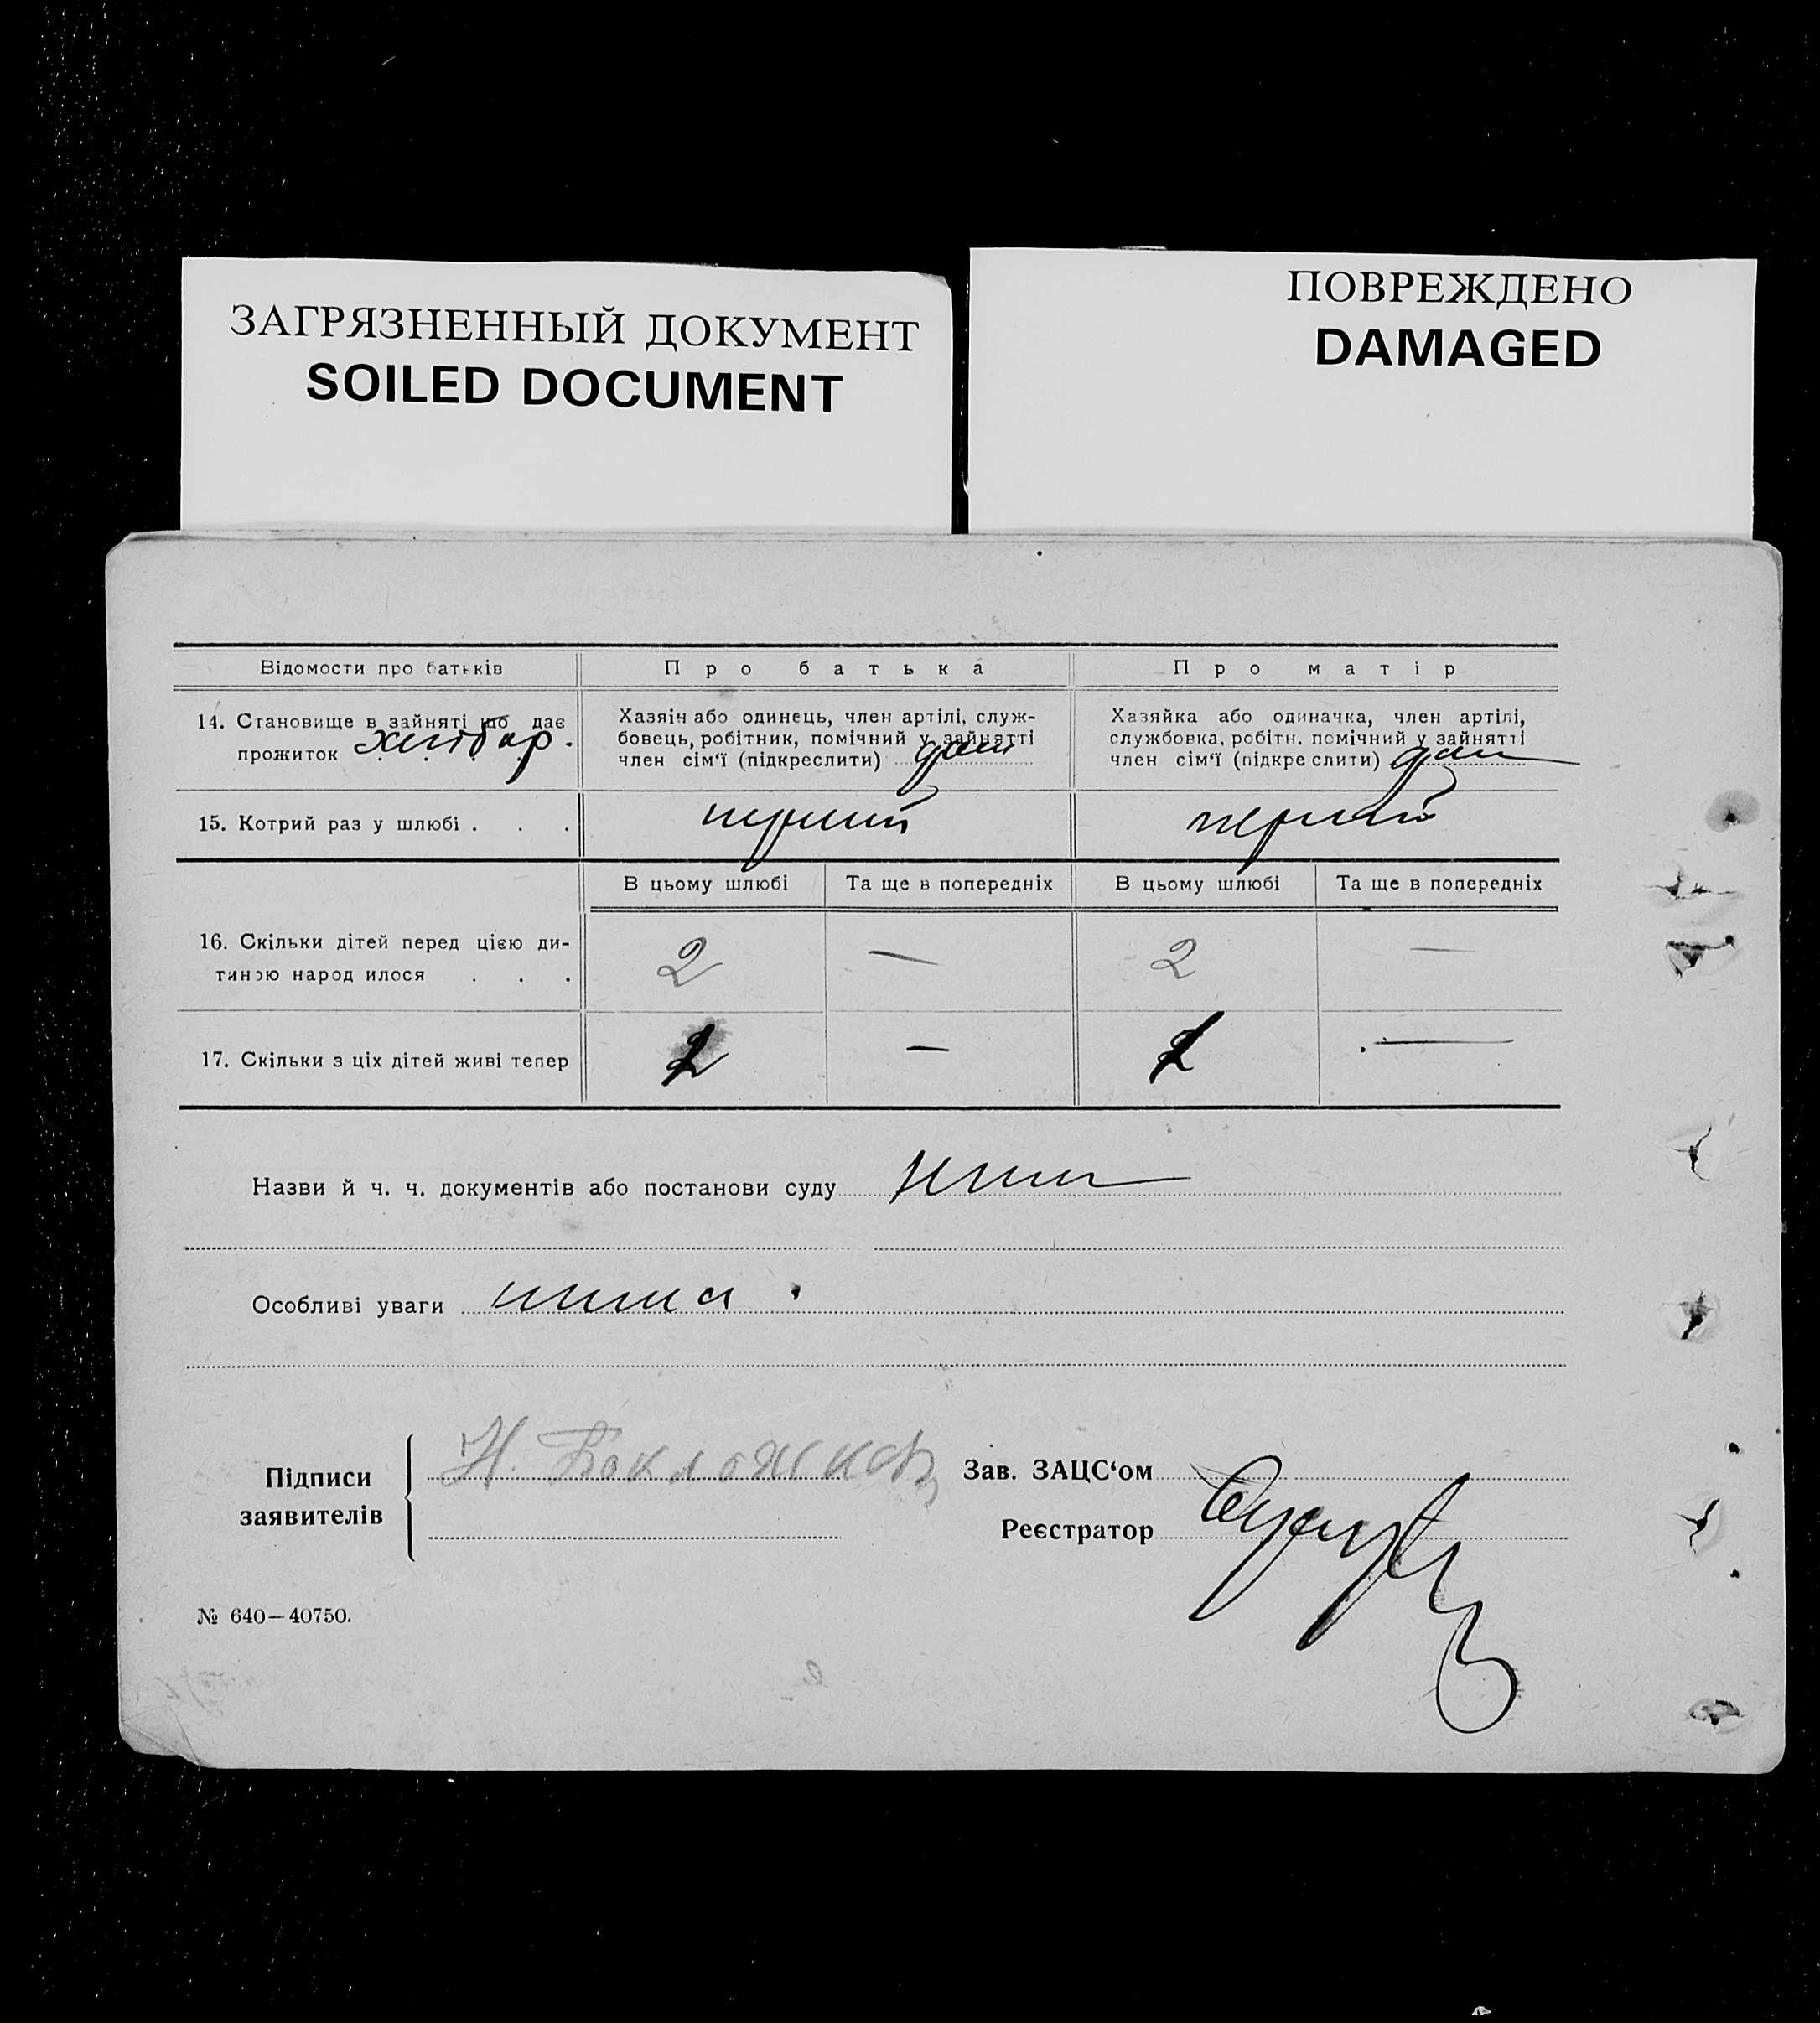 ЗАГРЯЗНЕННЫЙ ДОКУМЕНТ
SOILED DOCUMENT
ПОВРЕЖДЕНО
DAMAGED
Відомости про батьків
Про батька
Про матір
14. Становище в зайняті що дає
прожиток хлібор.
Хазяін або одинець, член артілі, служ-
бовець, робітник, помічний у зайнятті
член сім‘ї (підкреслити)
Хазяйка або одиначка, член артілі,
службовка, робітн. помічний у зайнятті
член сім‘ї (підкреслити)
15. Котрий раз у шлюбі . . .
перший
перший
В цьому шлюбі
Та ще в попередніх
В цьому шлюбі
Та ще в попередніх
16. Скільки дітей перед цією ди-
тиною народилося . . .
2 —
2 —
17. Скільки з ціх дітей живі тепер
—
—
Назви й ч. ч. документів або постанови суду
Особливі уваги нима
Підписи
заявителів
Н.
Зав. ЗАЦС‘ом
Реєстратор
№ 640—40750.